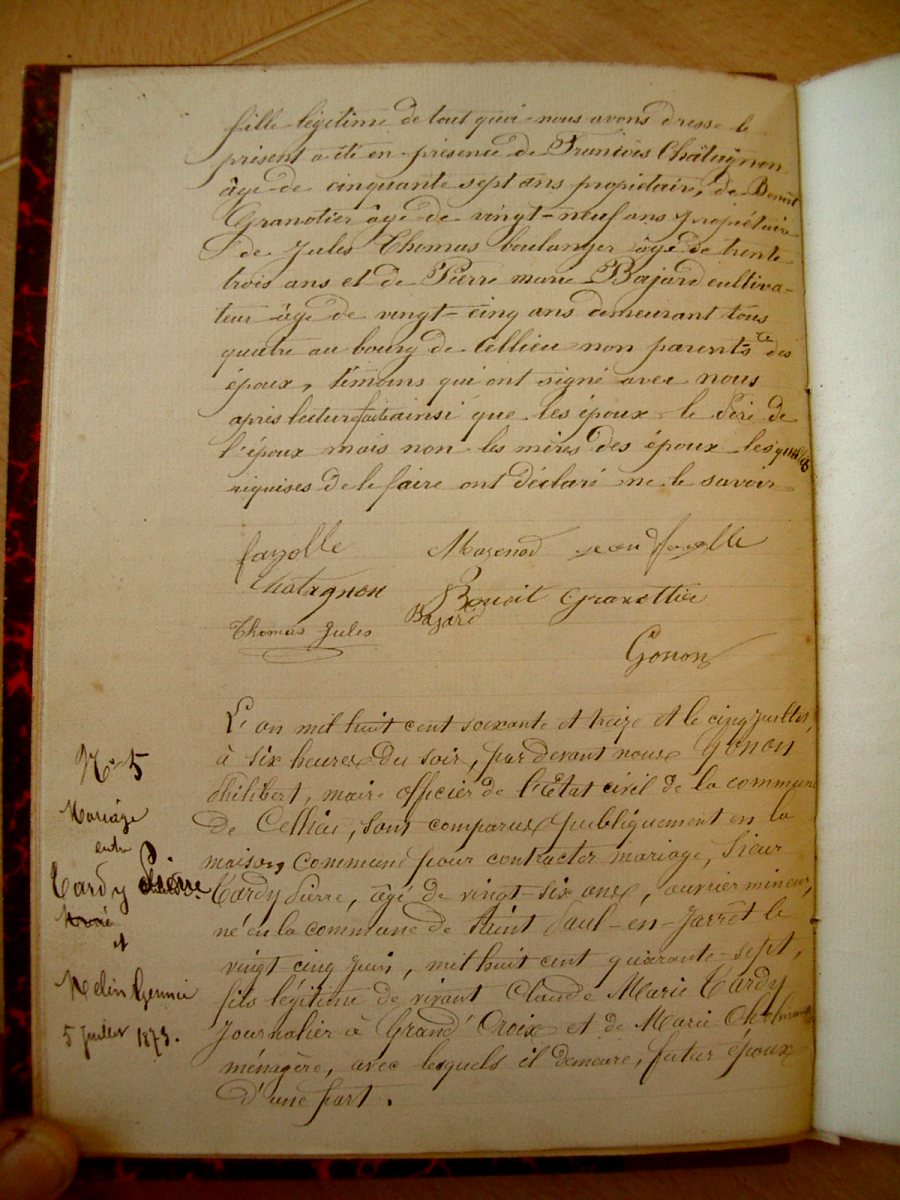 fille légitime de tout quoi nous avons dressé le
présent acte en présence de François Châtaignon
âgé de cinquante sept ans propietaire, de Benoit
Granotier âgé de vingt-neuf ans propriétaire
de Jules Thomas boulanger âgé de trente
trois ans et de Pierre marie Bajard cultiva-
teur âgé de vingt-cinq ans demeurant tous
quatre au bourg de Cellieu non parents des
époux, témoins qui ont signé avec nous
après lecture faite ainsi que les époux le Père de
l'époux mais non les mères des époux lesquelles
requises de le faire ont déclaré ne le savoir
fayolle Masenod jean fayolle
Chatagnon Benoit Granottier
Thomas Jules Bajard
Gonon
N° 5
Mariage
entre
Tardy Pierre
et
Melin
5 Juillet 1873.
L'an mil huit cent soixante et treize et le cinq juillet,
à six heures du soir, par devant nous Gonon
Philibert, maire officier de l'Etat civil de la commune
de Cellieu, sont comparus publiquement en la
maison commune pour contracter mariage, Sieur
Tardy Pierre, âgé de vingt-six ans, ouvrier mineur,
né en la commune de Saint Paul-en-Jarrêt le
vingt cinq juin, mil huit cent quarante-sept,
fils légitime de vivant Claude Marie Tardy
Journalier à Grand'Croix et de Marie
ménagère, avec lesquels il demeure, futur époux
d'une part.